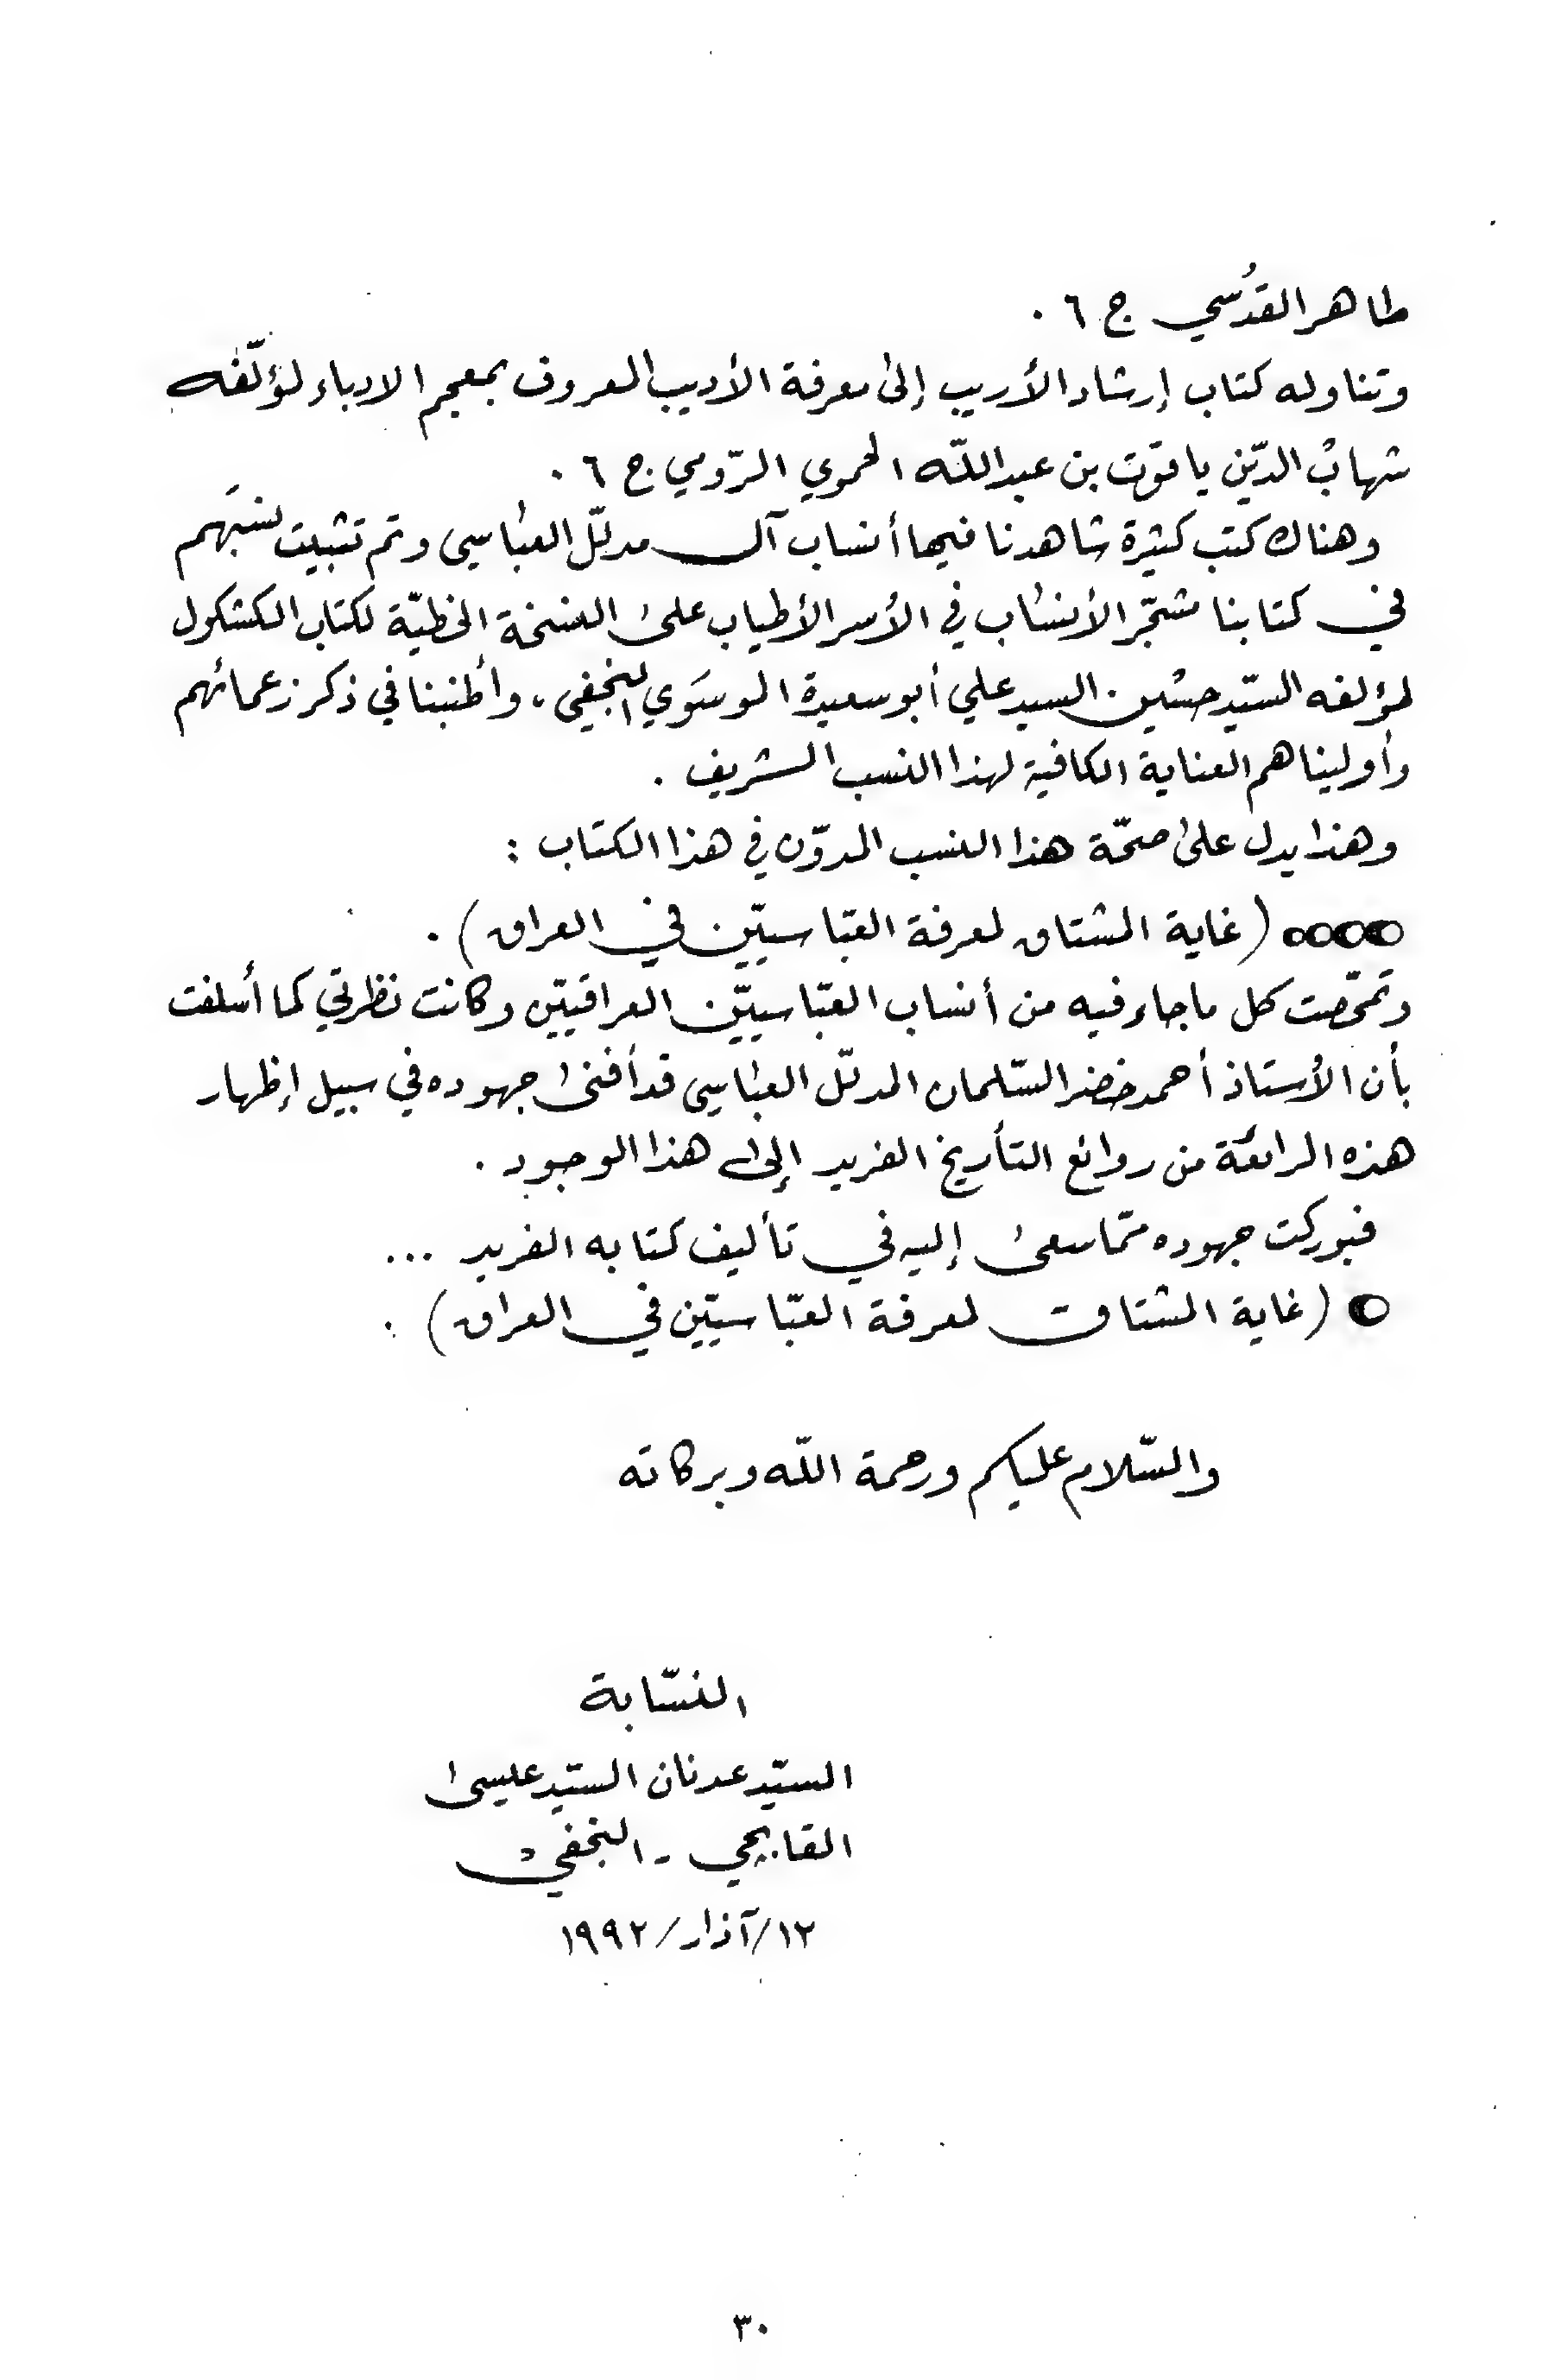 طاهر القدُسي ج ٦ .
وتناوله كتاب إرشاد الأريب إلى معرفة الأديب المعروف بمعجم الادباء لمؤلّفه
شهاب الدّين ياقوت بن عبد اللّه الحموي الرّومي ج ٦ .
وهناك كتب كثيرة شاهدنا فيها أنساب آل مدلّل العباسي وتم تثبيت نسبَهم
في كتابنا مشجّر الأنساب في الأسر الأطياب على النسخة الخطيّة لكتاب الكشكول
لمؤلفه السيّد حسين السيد علي أبو سعيدة الموسَوي النجفي، وأطنبنا في ذكر زعمائهم
وأوليناهم العناية الكافية لهذا النسب الشريف .
وهذا يدل على صحّة هذا النسب المدوّن في هذا الكتاب :
(غاية المشتاق لمعرفة العبّاسيّين في العراق) .
وتمحّصت كل ماجاء فيه من أنساب العبّاسييّن العراقييّن وكانت نظرتي كما أسلفت
بأن الأستاذ أحمد خضر السّلمان المدلّل العباسي قد أفنى جهوده في سبيل إظهار
هذه الرائعة من روائع التأريخ الفريد إلى هذا الوجود .
فبوركت جهوده ممّا سعى إليه في تأليف كتابه الفريد ...
(غاية المشتاق لمعرفة العبّاسيّين في العراق) .
والسّلام عليكم ورحمة اللّه وبركاته
النسّابة
السيّد عدنان السيّد عيسى
القابجي - النجفي
١٢/آذار/١٩٩٢
٣٠